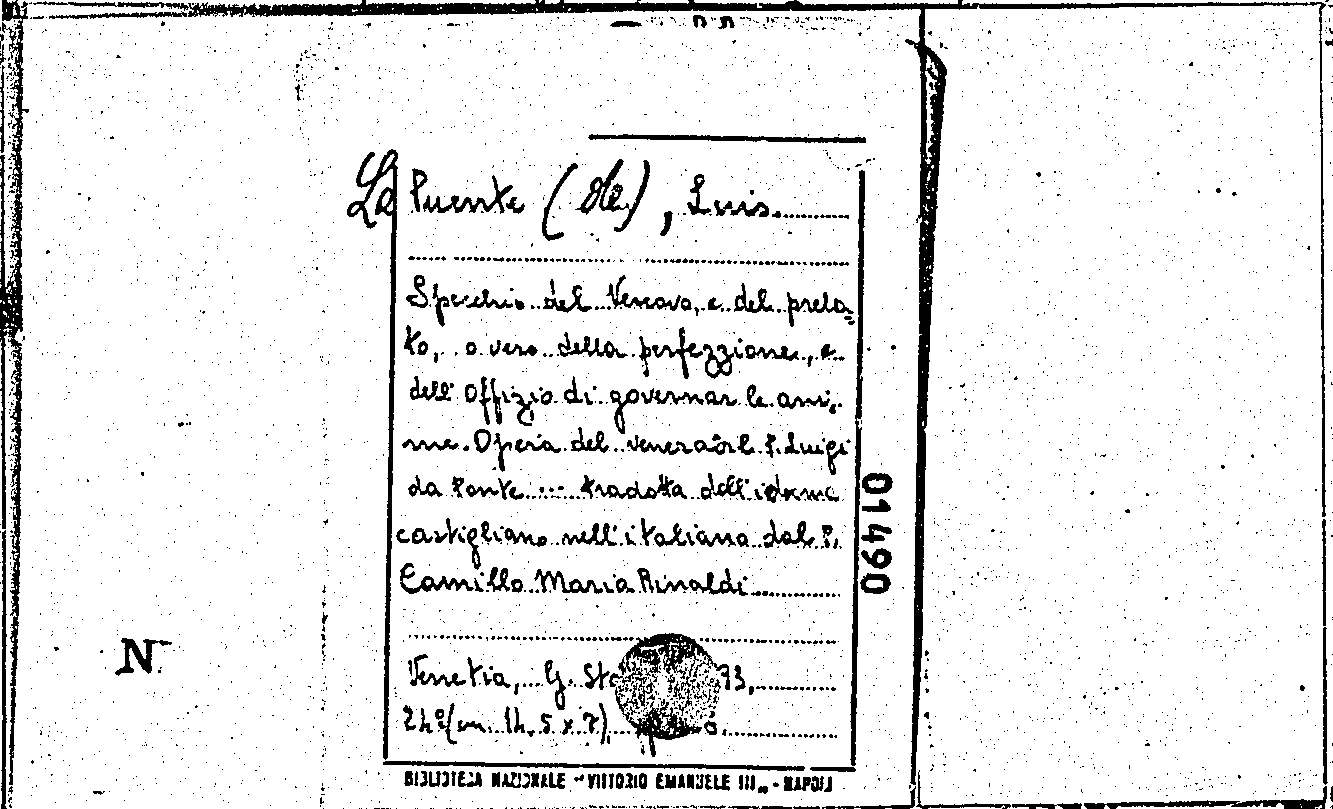 La Puente (de), Luis.
Specchio del Vescovo, e del prela=
to, o vero della perfezzione, e
dell' Offizio di governar le ani,
me. Opera del P. Luigi
da Ponte ... tradotta dall'
castigliano nell'italiano dal P.
Camillo Maria Rinaldi
Venetia, G. 93,
24° (cm. 14.5 x 7)
BIBLIOTECA NAZIONALE "VITTORIO EMANUELE III„ - NAPOLI
01490
N